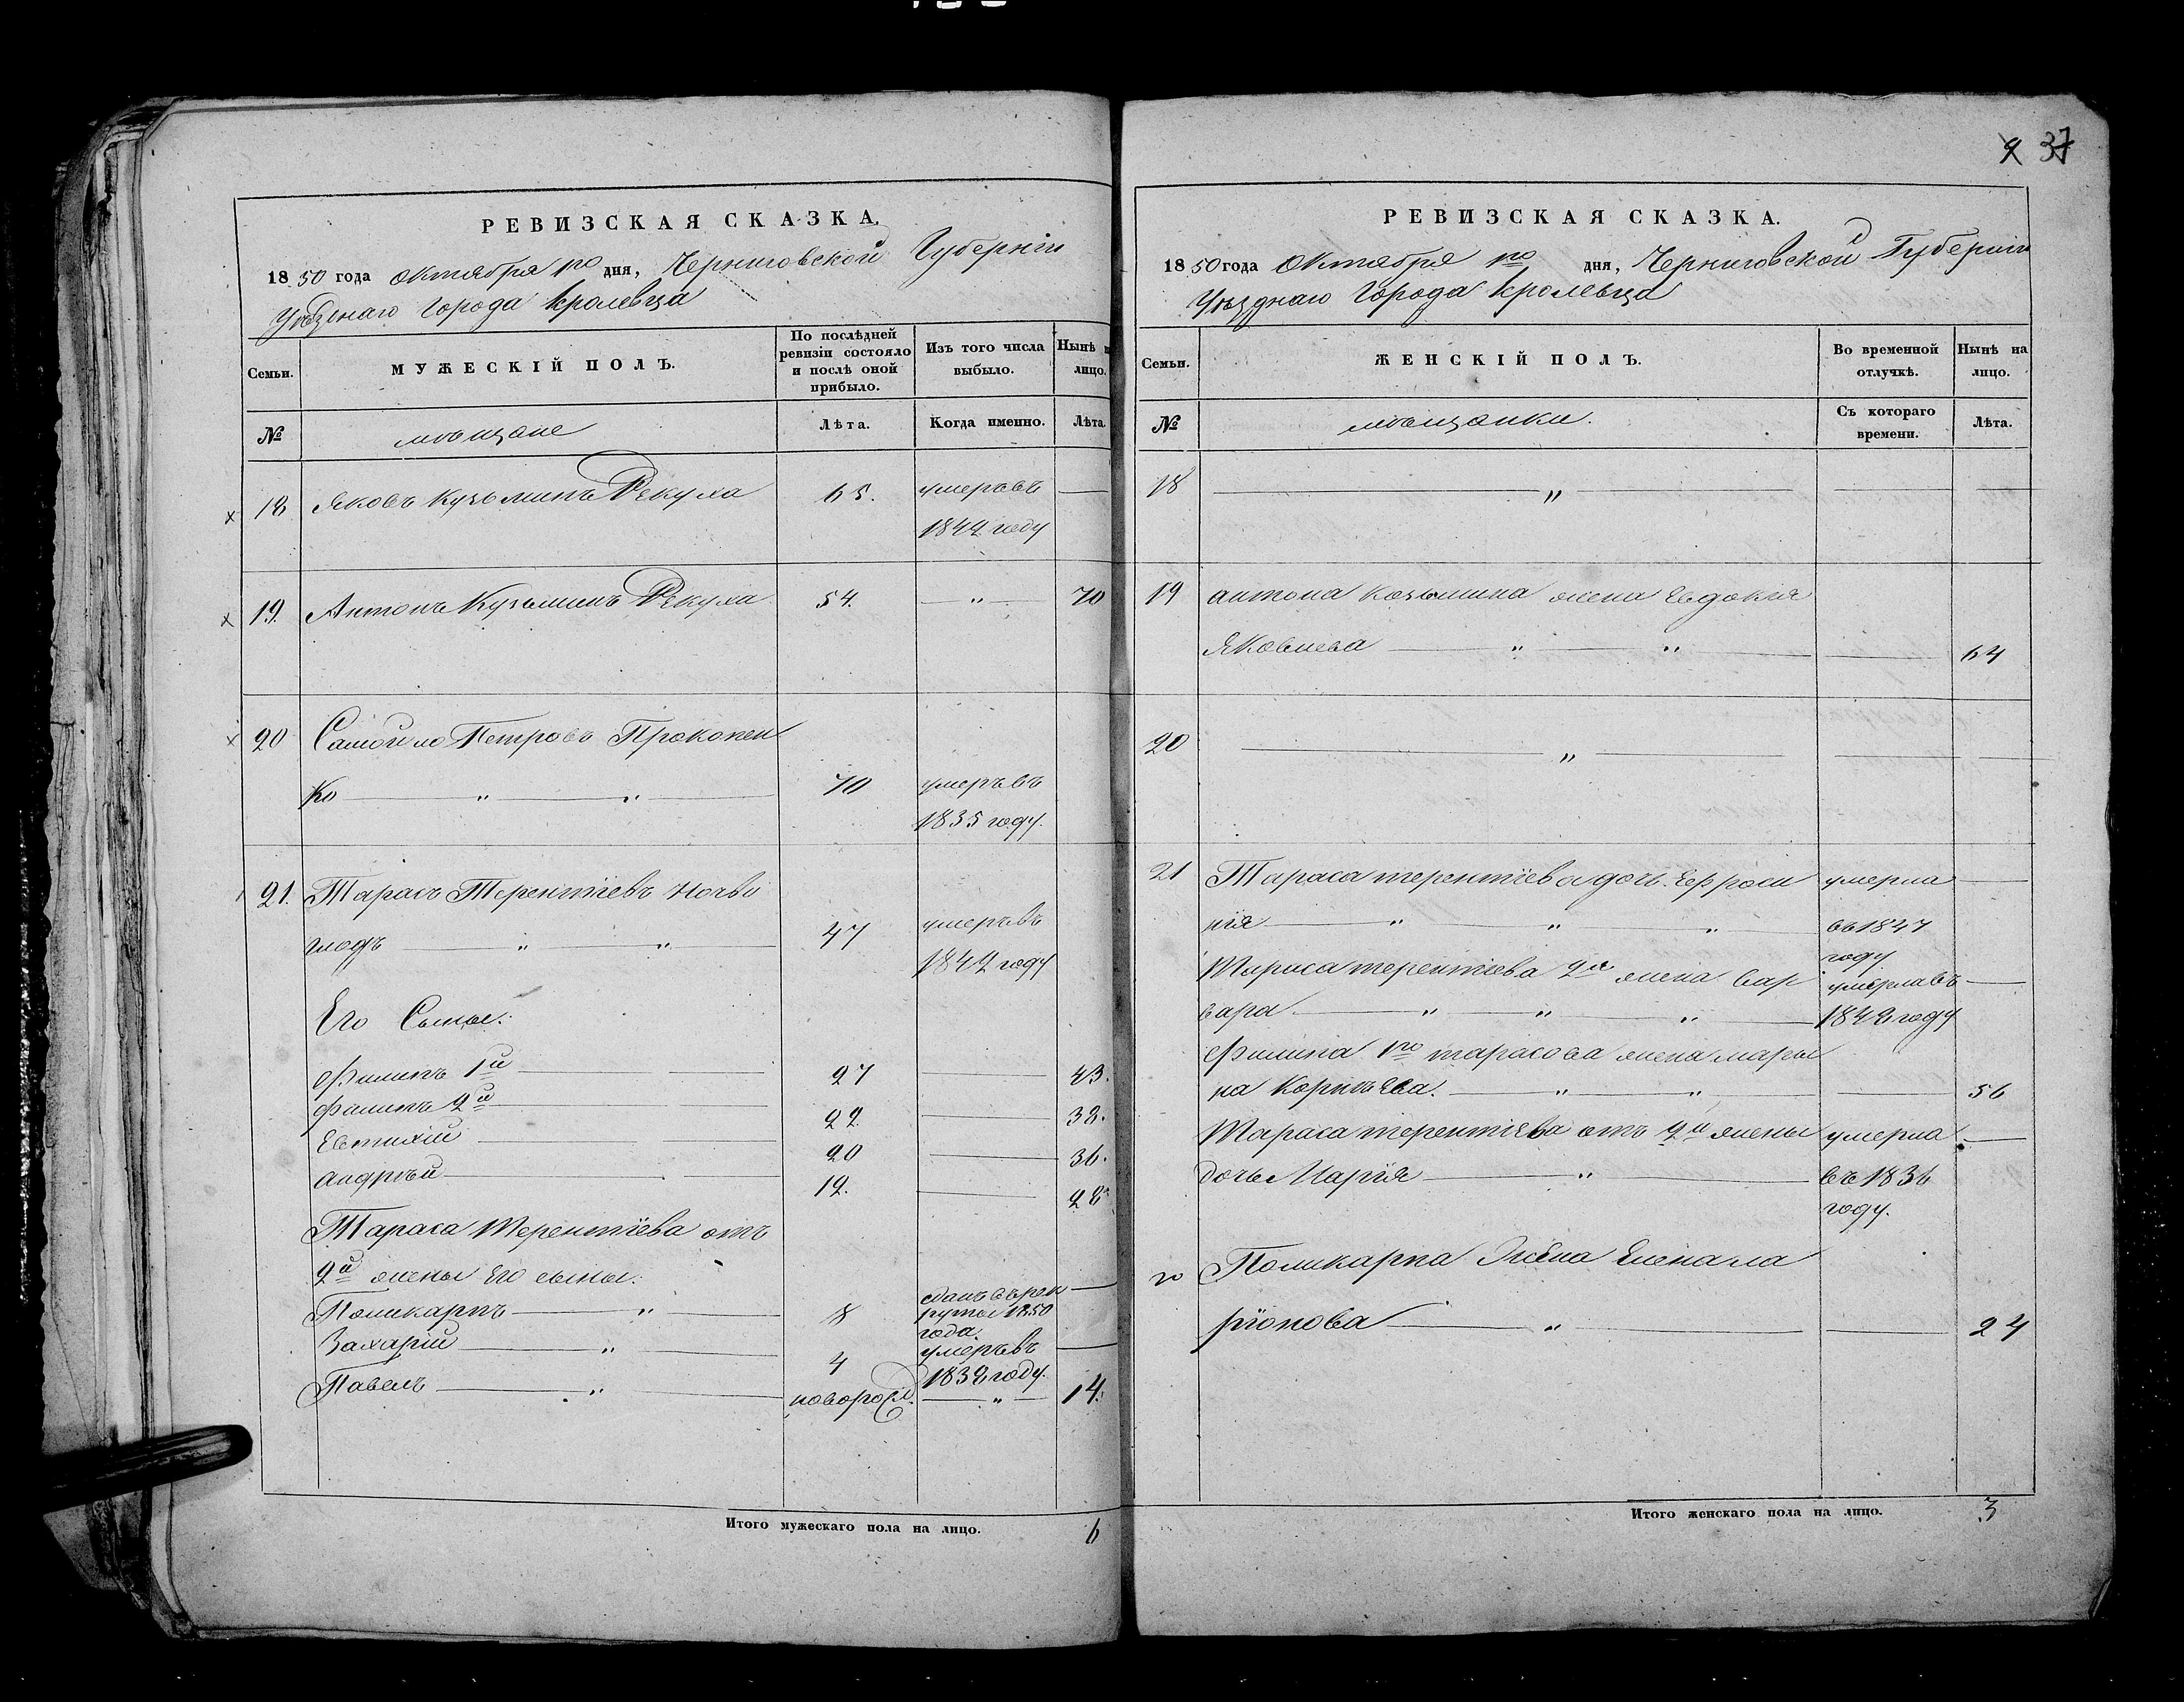 9 37
РЕВИЗСКАЯ СКАЗКА.
1850 года Октября 1го дня, Черниговской Губерніи
Уѣзднаго Города Кролевца
Семьи.
МУЖЕСКІЙ ПОЛЪ.
По послѣдней ревизіи состояло и послѣ оной прибыло.
Изъ того числа выбыло.
Нынѣ на лицо.
№
мѣщане
Лѣта.
Когда именно.
Лѣта.
18 Яковъ Кузьминъ Рекуха 65. умеръ въ
1842 году
19. Антонъ Кузьминъ Рекуха 54. 70
20 Самойло Петровъ Прокопен
ко 70 умеръ въ
1835 году.
21. Тарасъ Терентіевъ
47 умеръ въ
году
Его Сыны:
Филипъ 1й 27 43.
Филипъ 2й 22 38.
Евтихій 20 36.
Андрѣй 12. 28
Тараса Терентіева отъ
2й жены Его сыны:
Поликарпъ 8 сданъ в рек
руты 1850
года.
Захарій 4 умеръ въ
1832 году.
Павелъ новорожд. 14.
Итого мужескаго пола на лицо. 6
РЕВИЗСКАЯ СКАЗКА.
1850 года Октября 1го дня, Черниговской Губерніи
Уѣзднаго Города Кролевца
Семьи.
ЖЕНСКІЙ ПОЛЪ.
Во временной отлучкѣ.
Нынѣ на лицо.
№
мѣщанки.
Съ котораго времени.
Лѣта.
18
19 Антона Козьмина жена Евдокія
Яковлева 64
20
21 Тараса терентіева дочь Ефроси умерла
нія въ 1847
году
Тараса терентіева 2я жена Вар умерла въ
вара 1842 году
Филипа 1го тарасова жена Мары
на Корнѣева. 56
Тараса терентіева отъ 2й жены умерла
дочь Марія въ 1836
году.
Поликарпа Жена Елена Ла
ріонова 24
Итого женскаго пола на лицо. 3